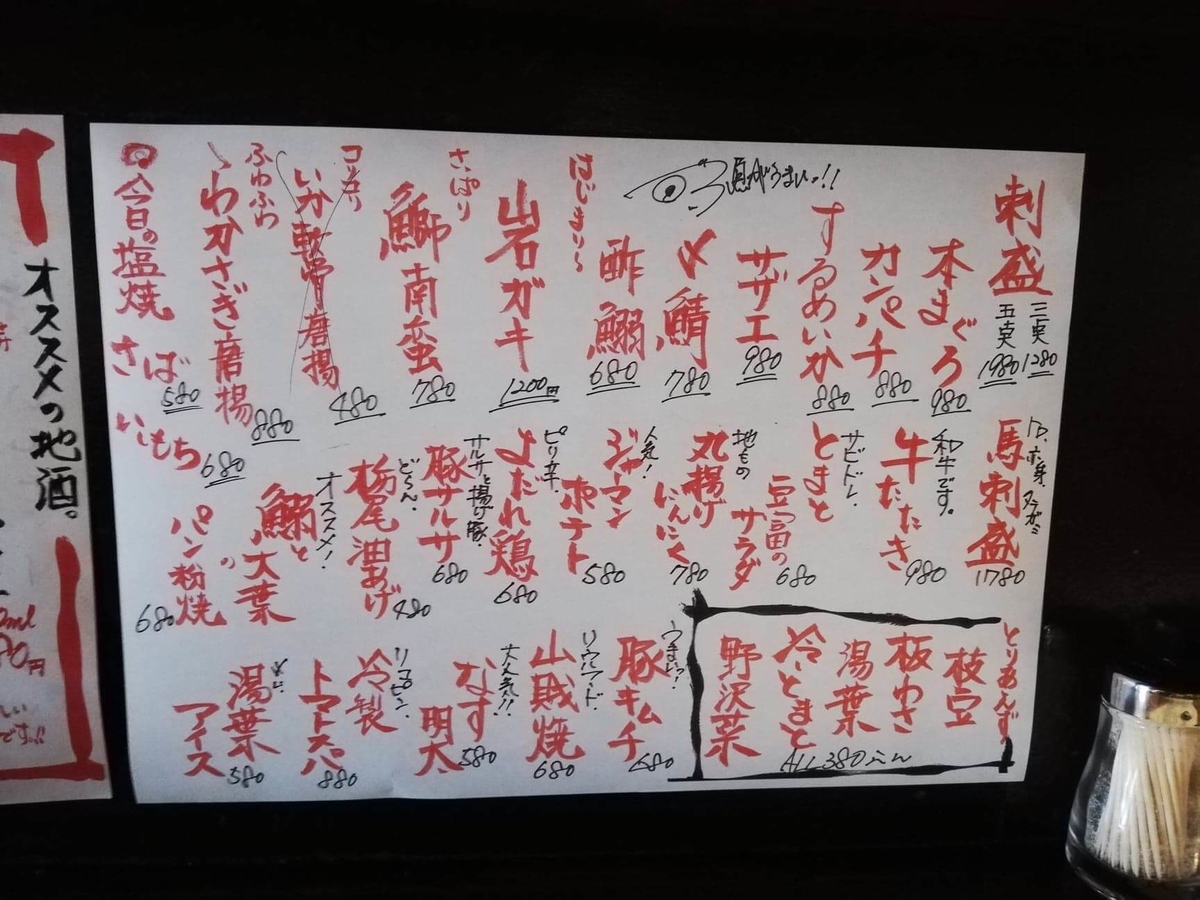 刺盛
三点 1280
五点 1980
本まぐろ
980
カンパチ
880
するめいか
880
サザエ
980
〆鯖
780
酢鰯
680
はじまりら
岩ガキ
1200円
さっぱり
鰤南蛮
780
コリコリ
いか軟骨唐揚
480
ふわふわ
わかさぎ唐揚
880
今日の塩焼
さば
580
いしもち
680
馬刺盛
1780
和牛です。
牛たたき
980
サビドレ
とまと
豆富の
サラダ
680
地もの
丸揚げ
にんにく
780
人気!
ジャーマン
ポテト
580
ピリ辛。
よだれ鶏
680
サルサと揚げ豚。
豚サルサ
680
どーん。
栃尾油あげ
480
オススメ!
鰯と
大葉
の
パン粉焼
680
とりあえんず
枝豆
板わさ
湯葉
冷とまと
野沢菜
ALL 380えん
うまいっ!
豚キムチ
680
山賊焼
680
大人気!!
なす
明太
580
リコピン。
冷製
トマトスパ
880
湯葉
アイス
580
オススメの地酒。